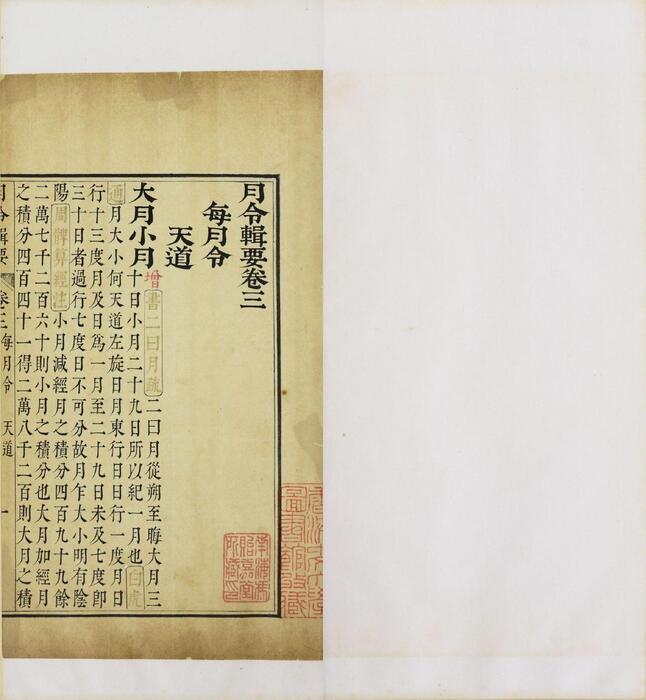 月令輯要卷三
每月令
天道
大月小月增書二曰月疏二曰月從朔至晦大月三
十日小月二十九日所以紀一月也白虎
通月大小何天道左旋日月東行日日行一度月日
行十三度月及日爲一月至二十九日未及七度即
三十日者過行七度日不可分故月乍大小明有陰
陽周髀算經注小月減經月之積分四百九十九餘
二萬七千二百六十則小月之積分也大月加經月
之積分四百四十一得二萬八千二百則大月之積
月令輯要 卷三 每月令 天道 一